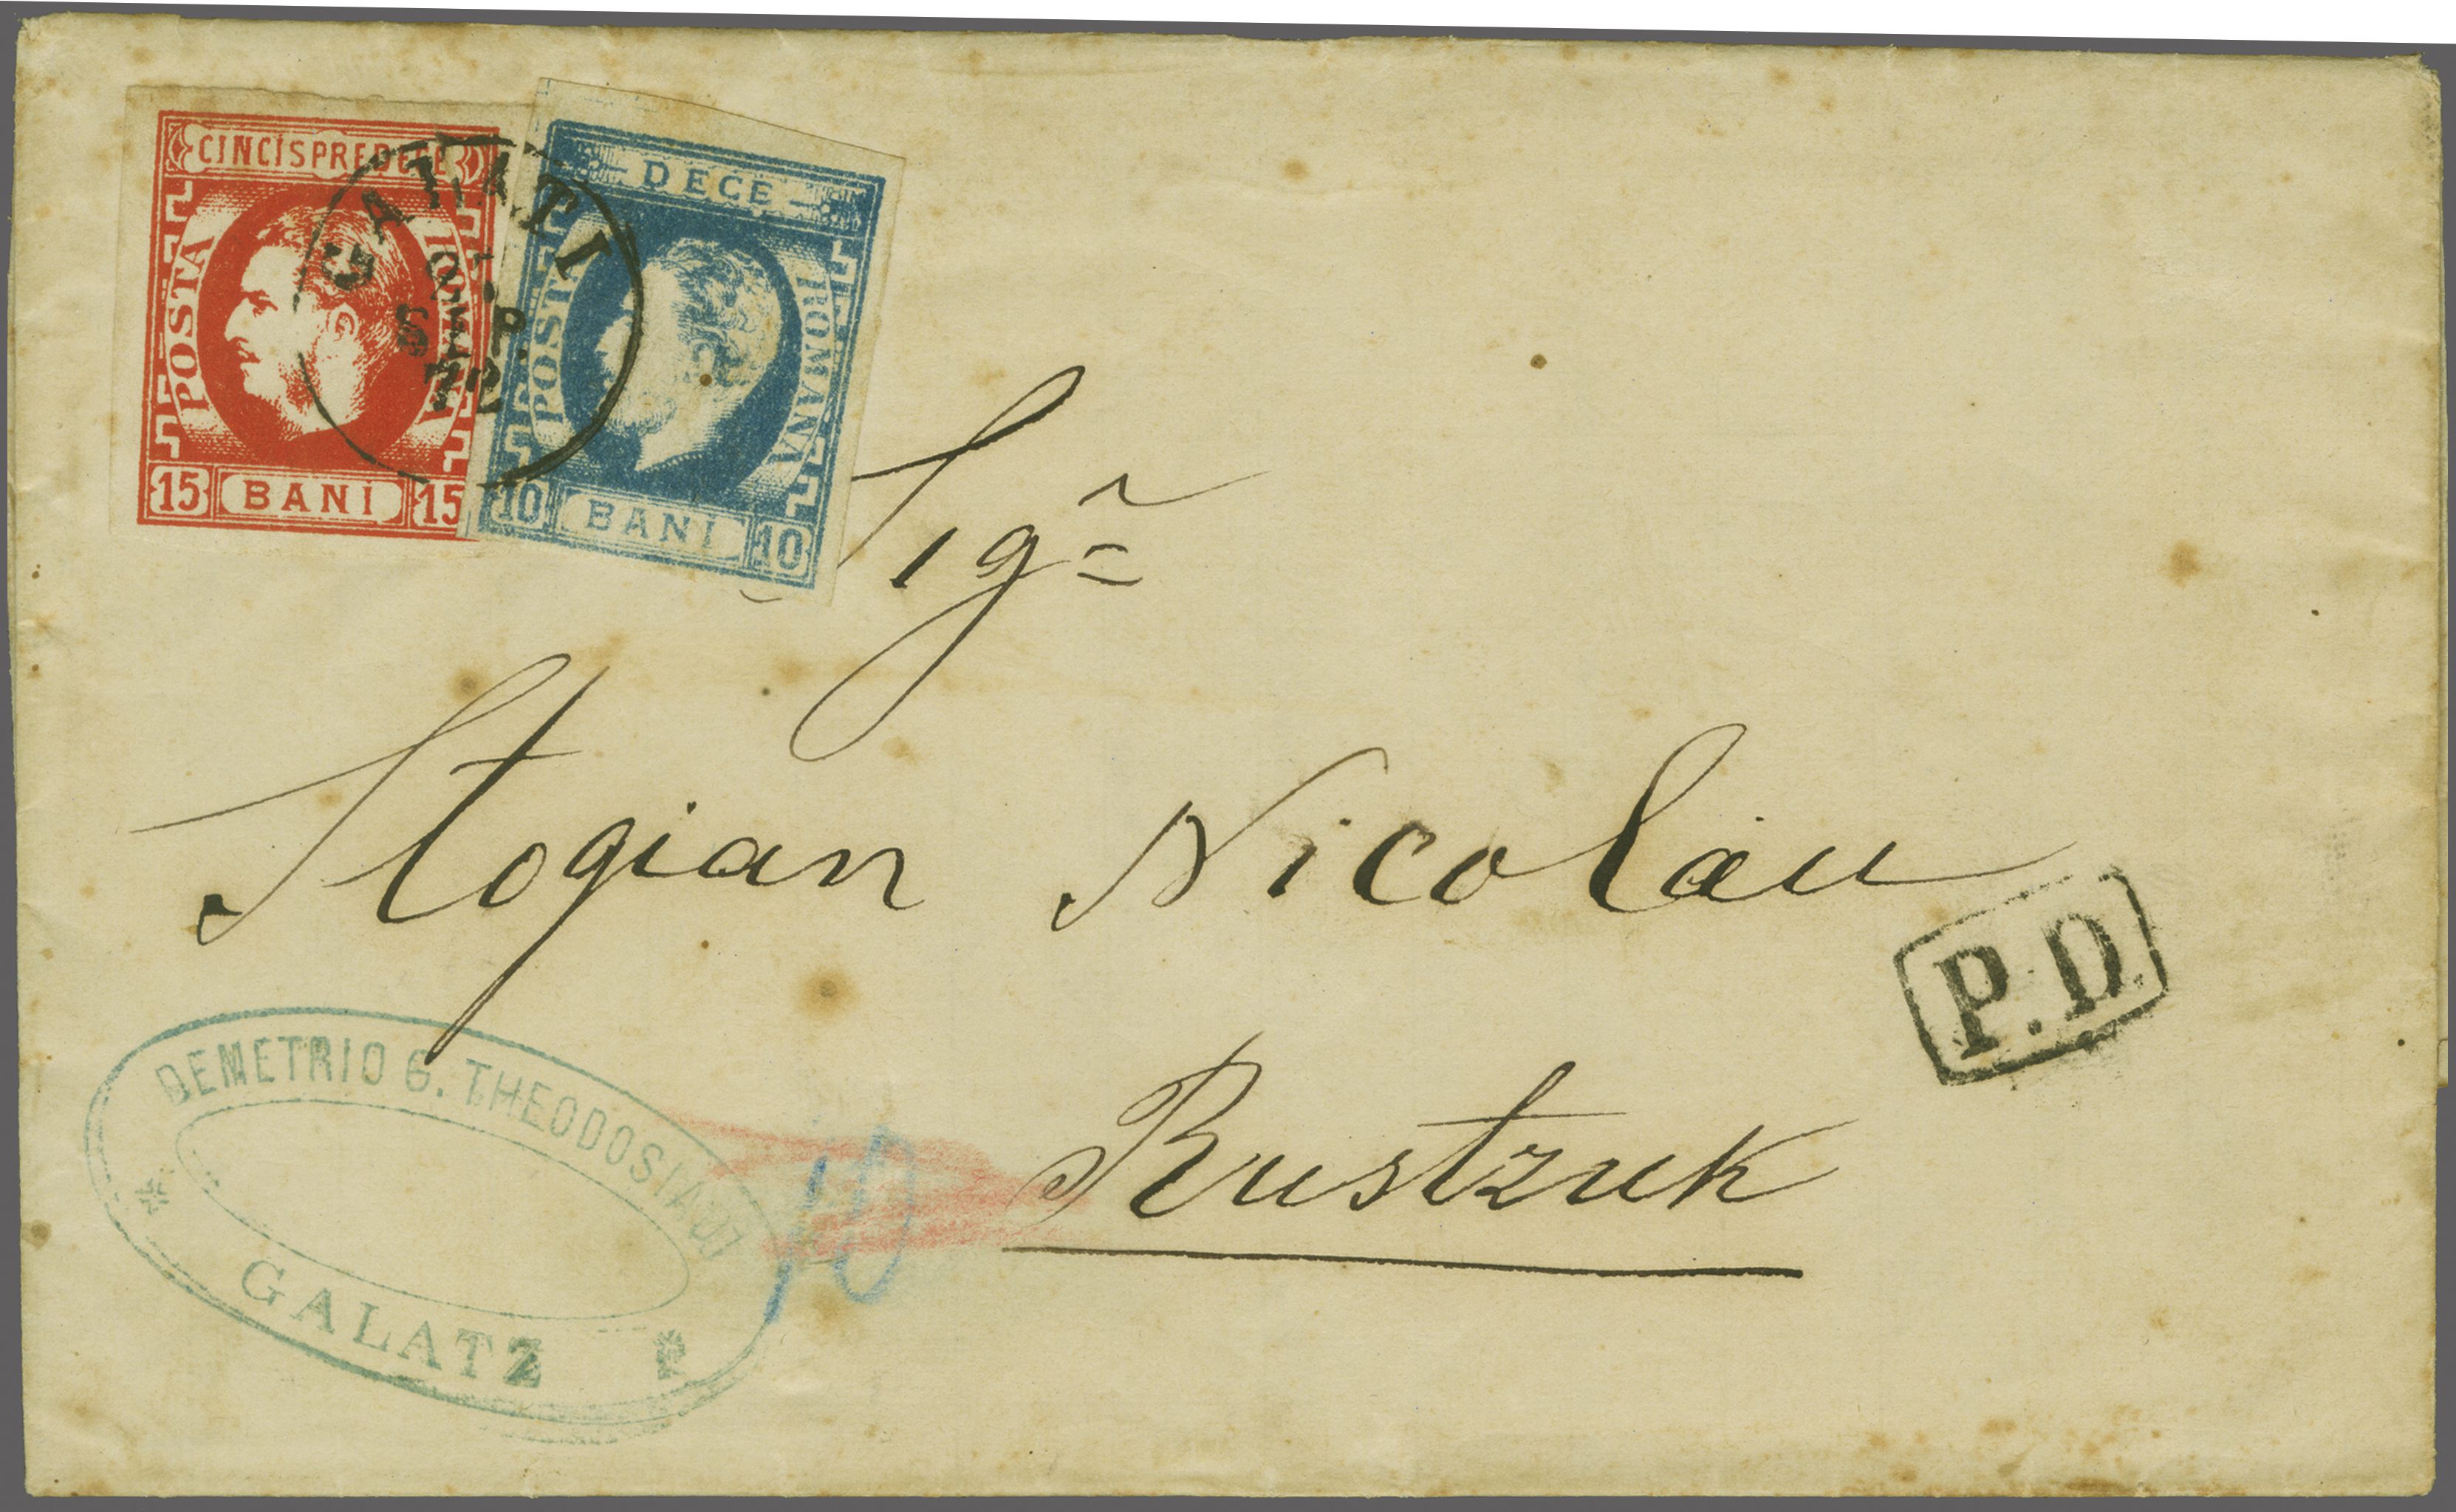 CINCISPREDECE
POSTA
ROMANA
15 BANI 15
DECE
POSTA
ROMANA
10 BANI 10
GALATI
72
Sigr
Stogian Nicolau
P.D.
Rustzuk
DEMETRIO G. THEODOSIADI
GALATZ
10